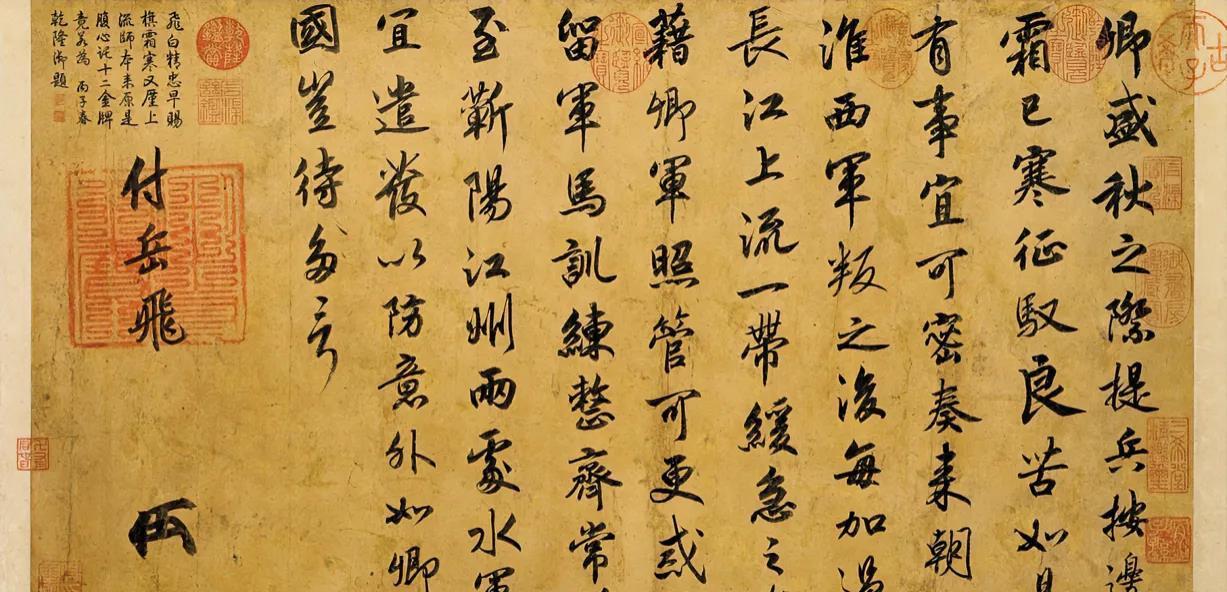 卿盛秋之際提兵按邊
霜已寒征馭良苦如
有事宜可密奏來朝
淮西軍叛之後每加
長江上流一帶緩急之
藉卿軍照管可更戒
留軍馬訓練整齊常
至蘄陽江州兩處水軍
宜遣發以防意外如卿
國豈待多言
付岳飛
飛白精忠早賜
旗霜寒又歷上
流師本來原是
腹心託十二金牌
竟若為 丙子春
乾隆御題